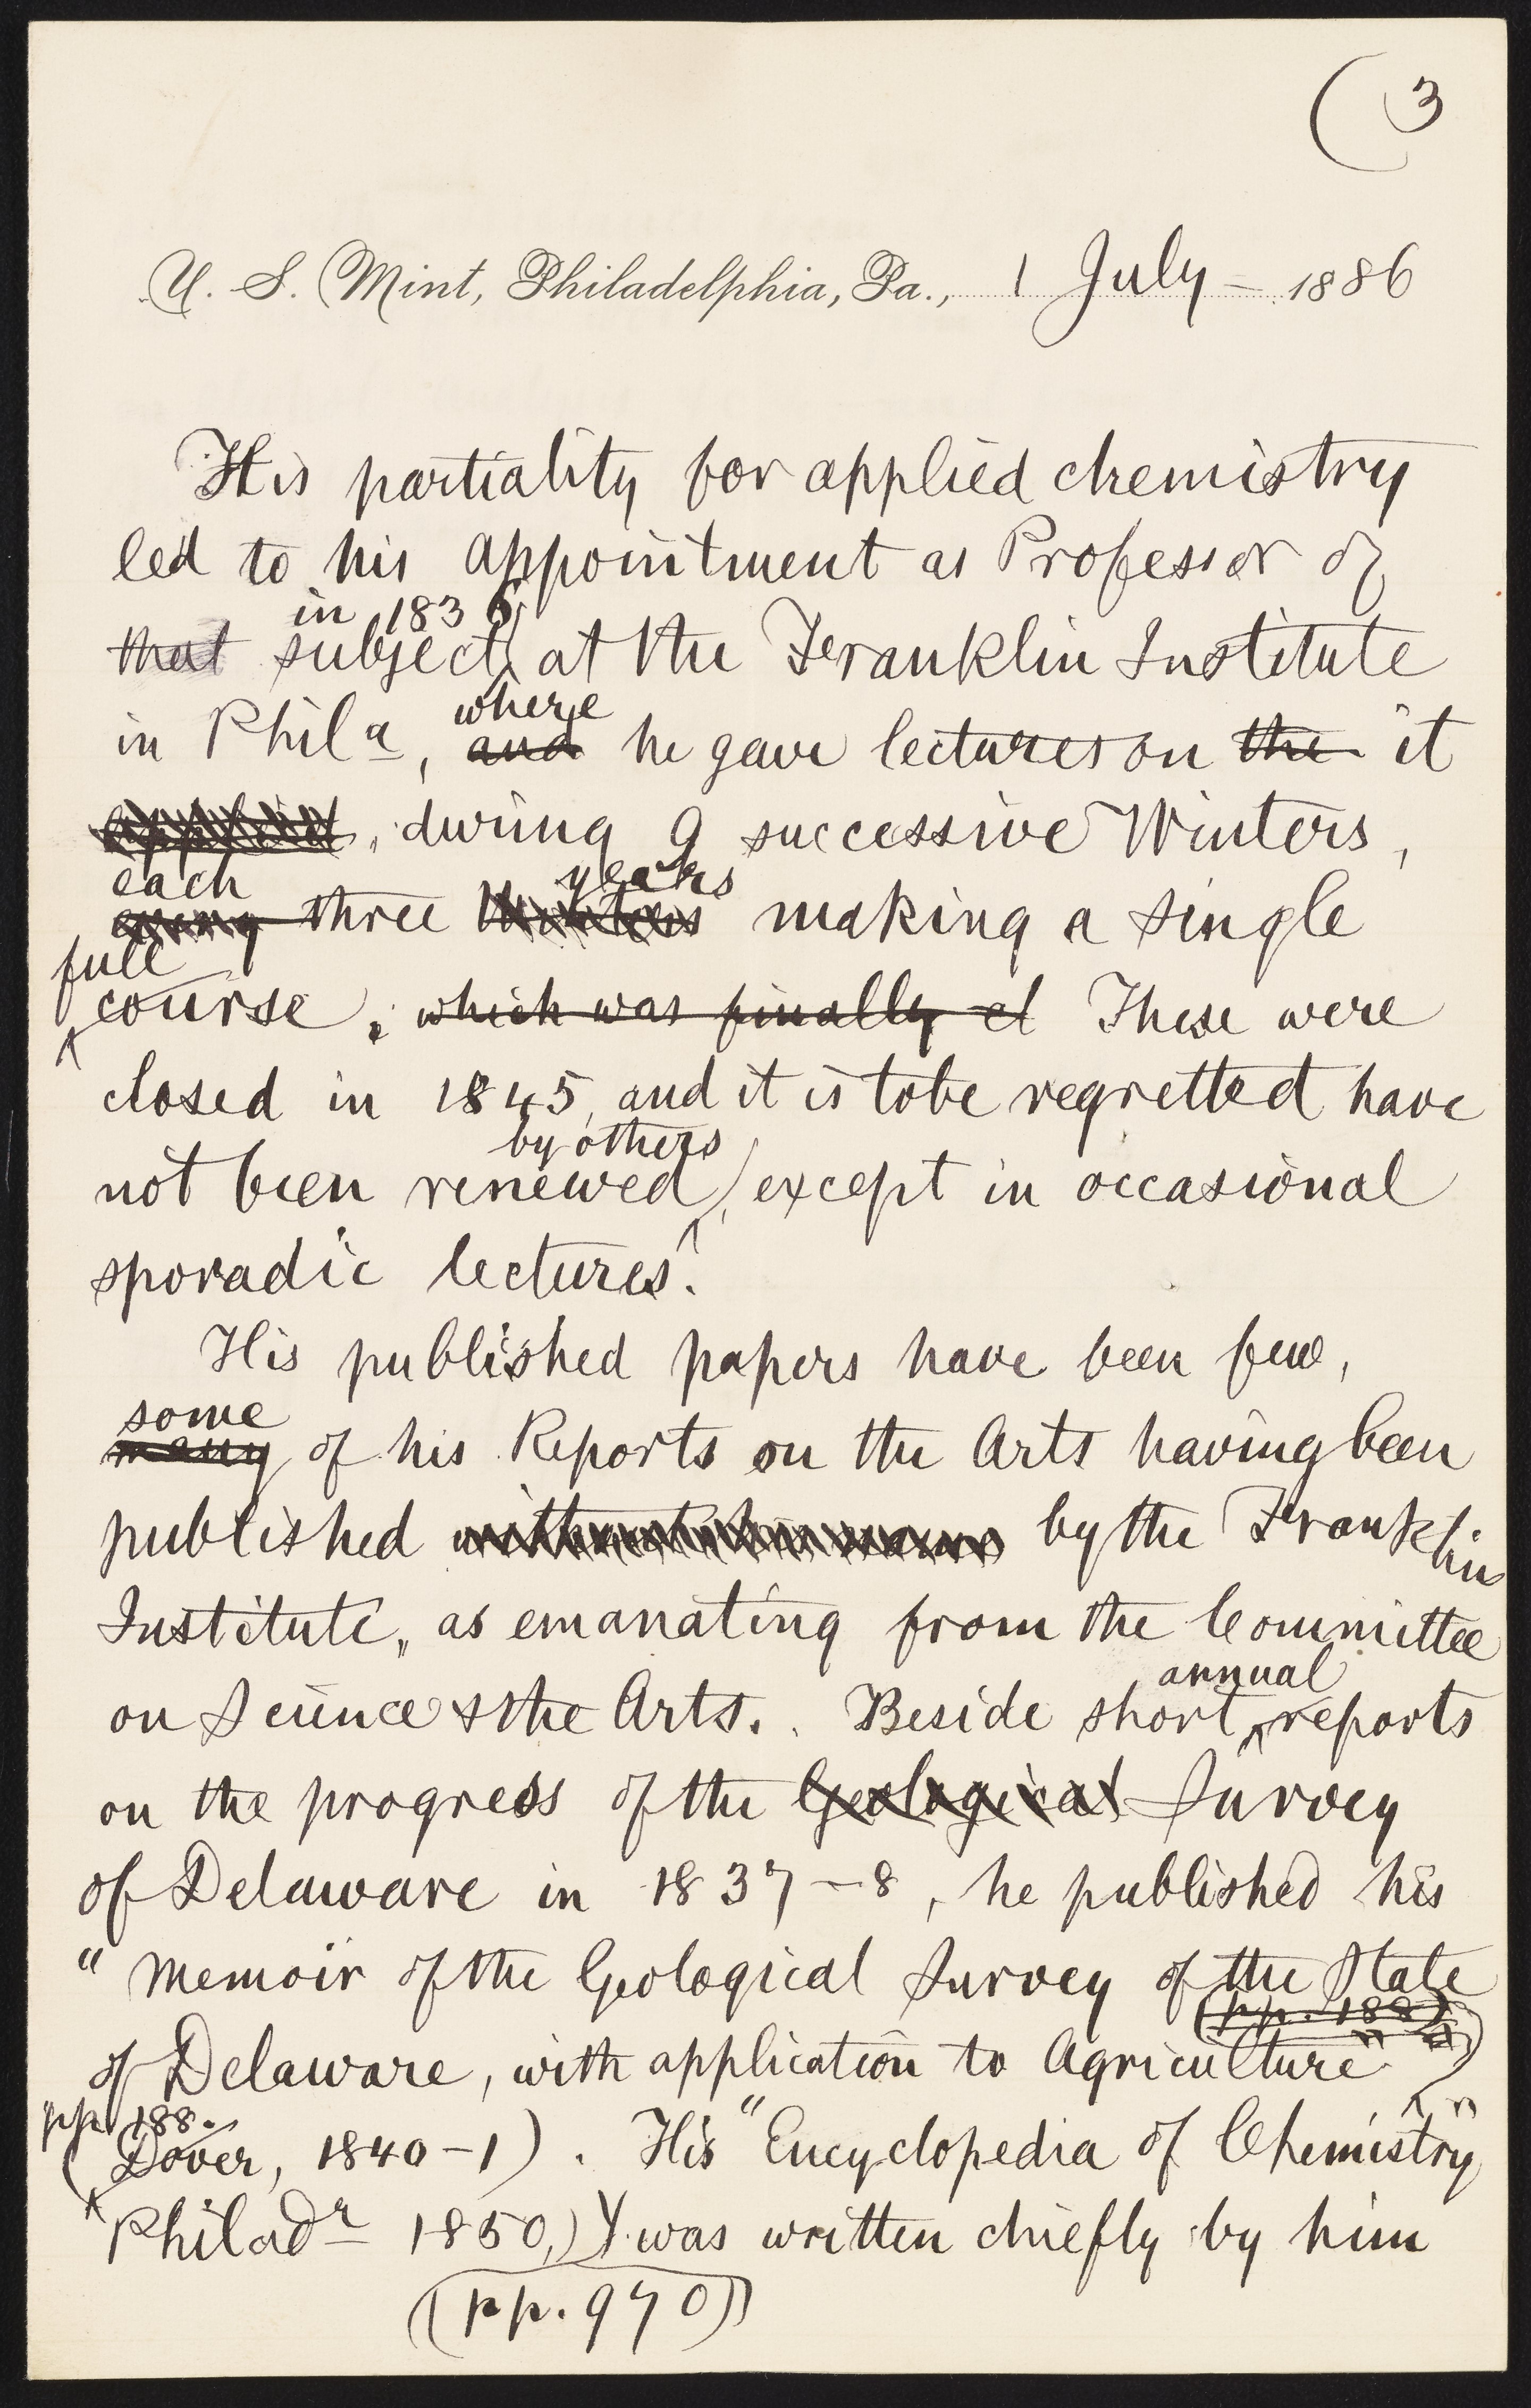 (3
U. S. Mint, Philadelphia, Pa., 1 July – 1886
His partiality for applied chemistry
led to his appointment as Professor of
in 1836
that subject, at the Franklin Institute
where
in Phila, and he gave lectures on the it
applied, during 9 successive Winters,
each years
every three Winters making a single
full
course, which was finally cl These were
closed in 1845, and it is to be regretted have
by others
not been renewed, except in occasional
sporadic lectures.
His published papers have been few,
some
many of his Reports on the Arts having been
published without his name by the Franklin
Institute, as emanating from the Committee
annual
on Science & the Arts. Beside short reports
on the progress of the Geological Survey
of Delaware in 1837–8, he published his
"Memoir of the Geological Survey of the State
(pp. 188)
of Delaware, with application to Agriculture"
pp. 188.
(Dover, 1840–1). His "Encyclopedia of Chemistry"
Philadᵃ 1850,) was written chiefly by him
(pp. 970)